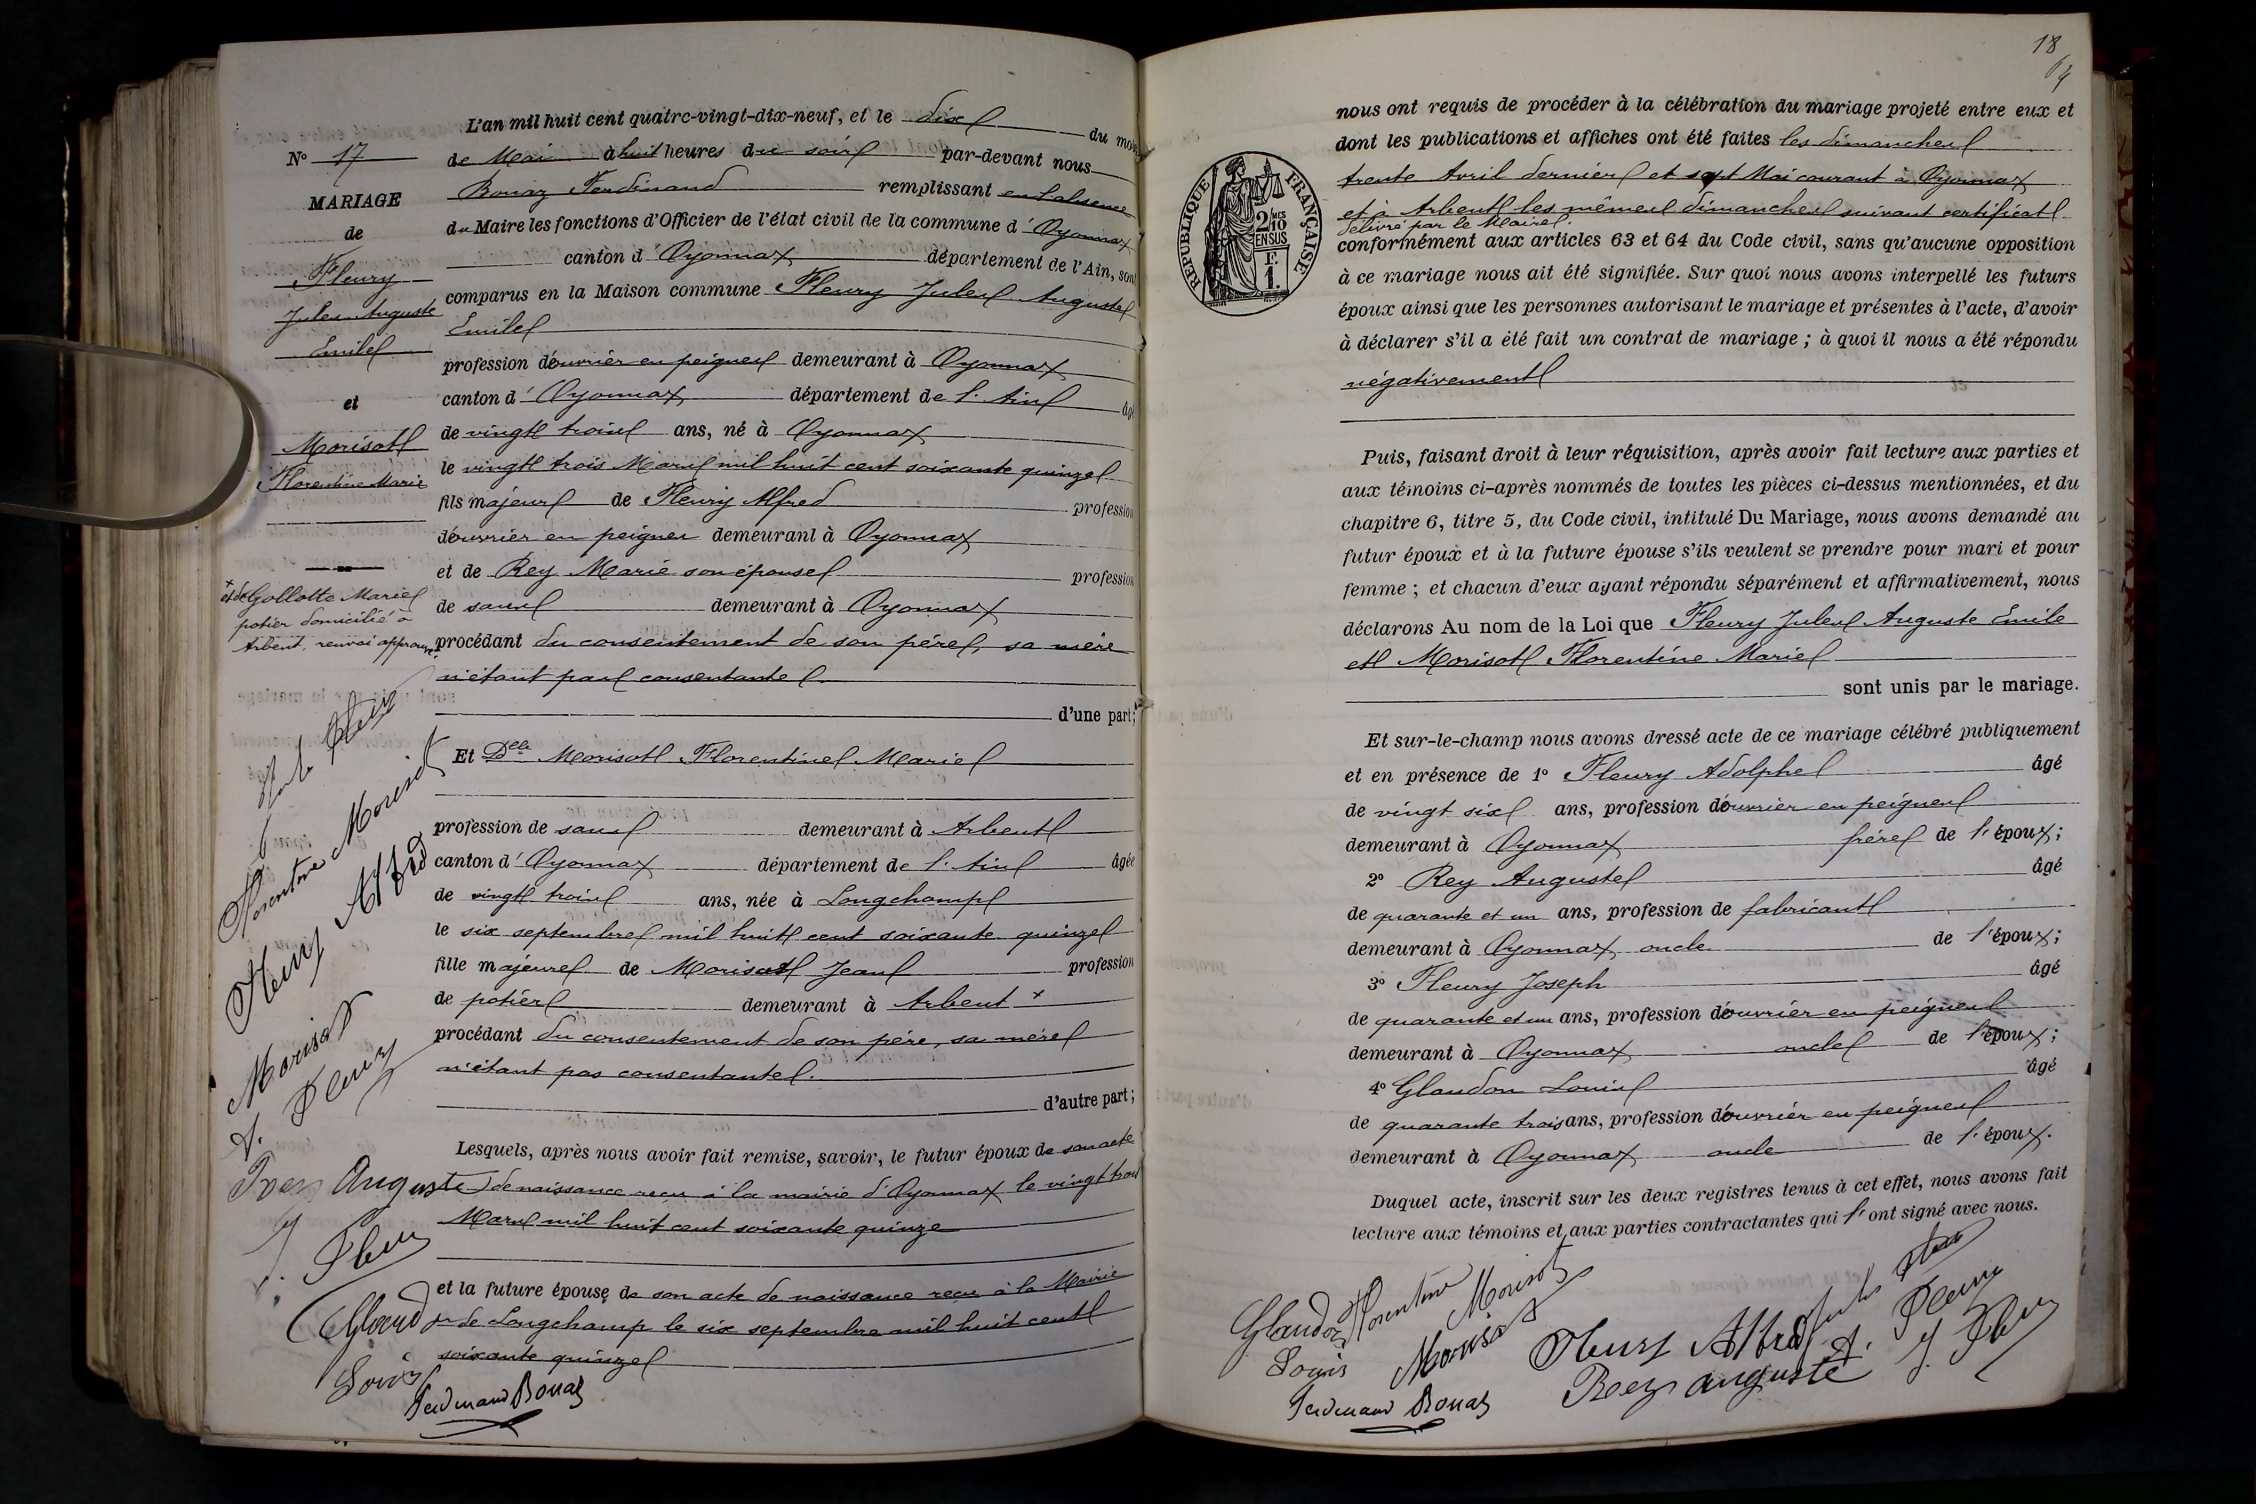 L'an mil huit cent quatre-vingt-dix-neuf, et le dix du mois
N° 17
de Mai à huit heures du soir par-devant nous
MARIAGE
Bouaz Ferdinand remplissant en l'absence
de
du Maire les fonctions d'Officier de l'état civil de la commune d'Oyonnax
canton d'Oyonnax département de l'Ain, sont
Fleury
Jules Auguste
Emile
comparus en la Maison commune Fleury Jules Auguste
Emile
profession d'ouvrier en peignes demeurant à Oyonnax
et
canton d'Oyonnax département de l'Ain âgé
Morisot
Florentine Marie
de vingt trois ans, né à Oyonnax
le vingt trois Mars mil huit cent soixante quinze
fils majeur de Fleury Alfred profession
d'ouvrier en peignes demeurant à Oyonnax
et de Rey Marie son épouse profession
de sans demeurant à Oyonnax
procédant du consentement de son père, sa mère
n'étant pas consentante
d'une part;
+ et de Gollotte Marie
potier domicilié à
Arbent, renvoi approuvé
Et Delle Morisot Florentine Marie
profession de sans demeurant à Arbent
canton d'Oyonnax département de l'Ain âgée
de vingt trois ans, née à Longchamp
le six septembre mil huit cent soixante quinze
fille majeure de Morisot Jean profession
de potier demeurant à Arbent +
procédant du consentement de son père, sa mère
n'étant pas consentante.
d'autre part;
Lesquels, après nous avoir fait remise, savoir, le futur époux de son acte
de naissance reçu à la mairie d'Oyonnax le vingt trois
Mars mil huit cent soixante quinze
et la future épouse de son acte de naissance reçu à la Mairie
de Longchamp le six septembre mil huit cent
soixante quinze
Florentine Morisot
Fleury Alfred
Morisot
A. Fleury
Rey Auguste
J. Fleury
Glaudon
Louis
Ferdinand Bouaz
18
64
nous ont requis de procéder à la célébration du mariage projeté entre eux et
dont les publications et affiches ont été faites les dimanches
trente Avril dernier et sept Mai courant à Oyonnax
et à Arbent les mêmes dimanches suivant certificat
délivré par le Maire
conformément aux articles 63 et 64 du Code civil, sans qu'aucune opposition
à ce mariage nous ait été signifiée. Sur quoi nous avons interpellé les futurs
époux ainsi que les personnes autorisant le mariage et présentes à l'acte, d'avoir
à déclarer s'il a été fait un contrat de mariage ; à quoi il nous a été répondu
négativement
RÉPUBLIQUE FRANÇAISE
2/10 MES
EN SUS
F.
1.
Puis, faisant droit à leur réquisition, après avoir fait lecture aux parties et
aux témoins ci-après nommés de toutes les pièces ci-dessus mentionnées, et du
chapitre 6, titre 5, du Code civil, intitulé Du Mariage, nous avons demandé au
futur époux et à la future épouse s'ils veulent se prendre pour mari et pour
femme ; et chacun d'eux ayant répondu séparément et affirmativement, nous
déclarons Au nom de la Loi que Fleury Jules Auguste Emile
et Morisot Florentine Marie
sont unis par le mariage.
Et sur-le-champ nous avons dressé acte de ce mariage célébré publiquement
et en présence de 1° Fleury Adolphe âgé
de vingt six ans, profession d'ouvrier en peignes
demeurant à Oyonnax frère de l'époux;
2° Rey Auguste âgé
de quarante et un ans, profession de fabricant
demeurant à Oyonnax oncle de l'époux;
3° Fleury Joseph âgé
de quarante et un ans, profession d'ouvrier en peignes
demeurant à Oyonnax oncle de l'époux;
4° Glaudon Louis âgé
de quarante trois ans, profession d'ouvrier en peignes
demeurant à Oyonnax oncle de l'époux.
Duquel acte, inscrit sur les deux registres tenus à cet effet, nous avons fait
lecture aux témoins et aux parties contractantes qui l'ont signé avec nous.
Glaudon
Louis
Florentine Morisot
Morisot
Fleury Alfred
A. Fleury
Rey auguste
J. Fleury
Ferdinand Bouaz